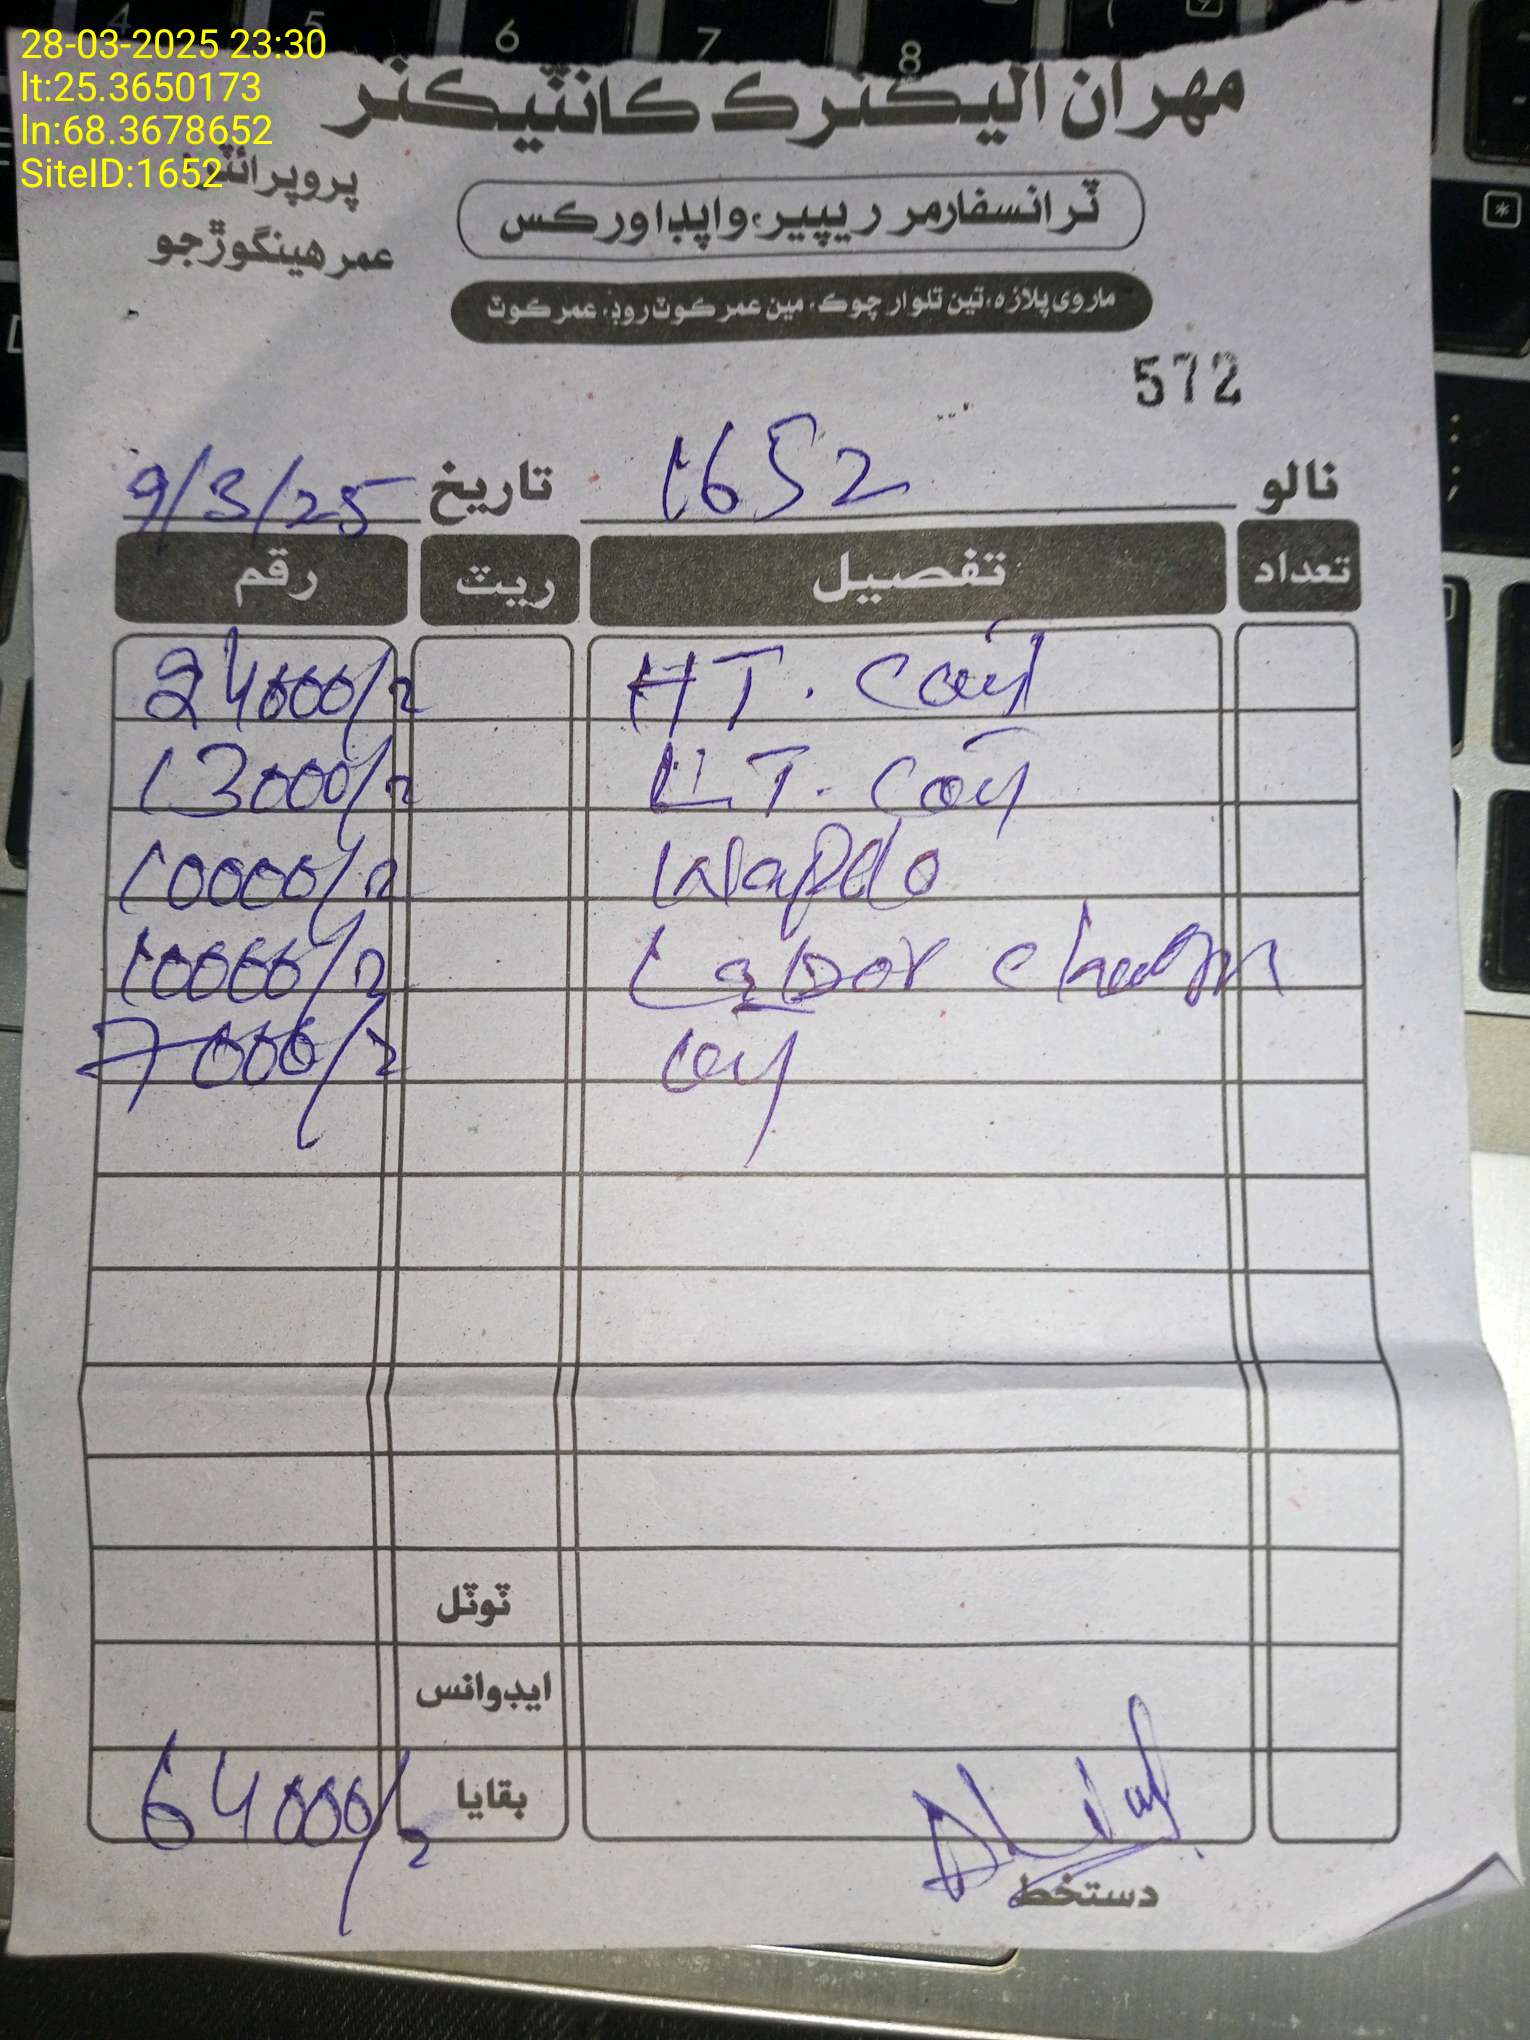 28-03-2025 23:30
lt:25.3650173
ln:68.3678652
SiteID:1652
مهران اليڪٽرڪ ڪانٽيڪٽر
پروپرائٽر:
ٽرانسفارمر ريپير، واپڊا ورڪس
عمر هينگورجو
ماروي پلازه، تين تلوار چوڪ، مين عمرڪوٽ روڊ، عمرڪوٽ
572
نالو 1652 تاريخ 9/3/25
تعداد تفصيل ريٽ رقم
HT. Coil 24000/2
LT. Coil 13000/2
Wapda 10000/2
Labor 10000/2
7000/2
ٽوٽل
ايڊوانس
بقايا 64000/2
دستخط